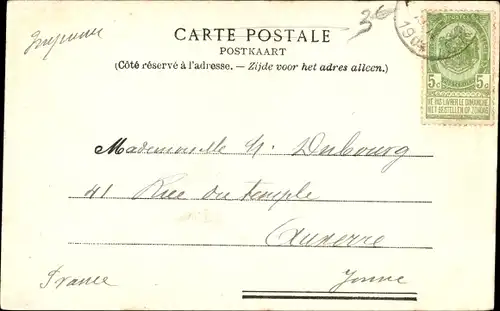 Imprimé
CARTE POSTALE
POSTKAART
(Côté réservé à l'adresse. — Zijde voor het adres alleen.)
5c 5c
NE PAS LIVRER LE DIMANCHE
NIET BESTELLEN OP ZONDAG
Mademoiselle
41 Rue du temple
Auxerre
Yonne
France